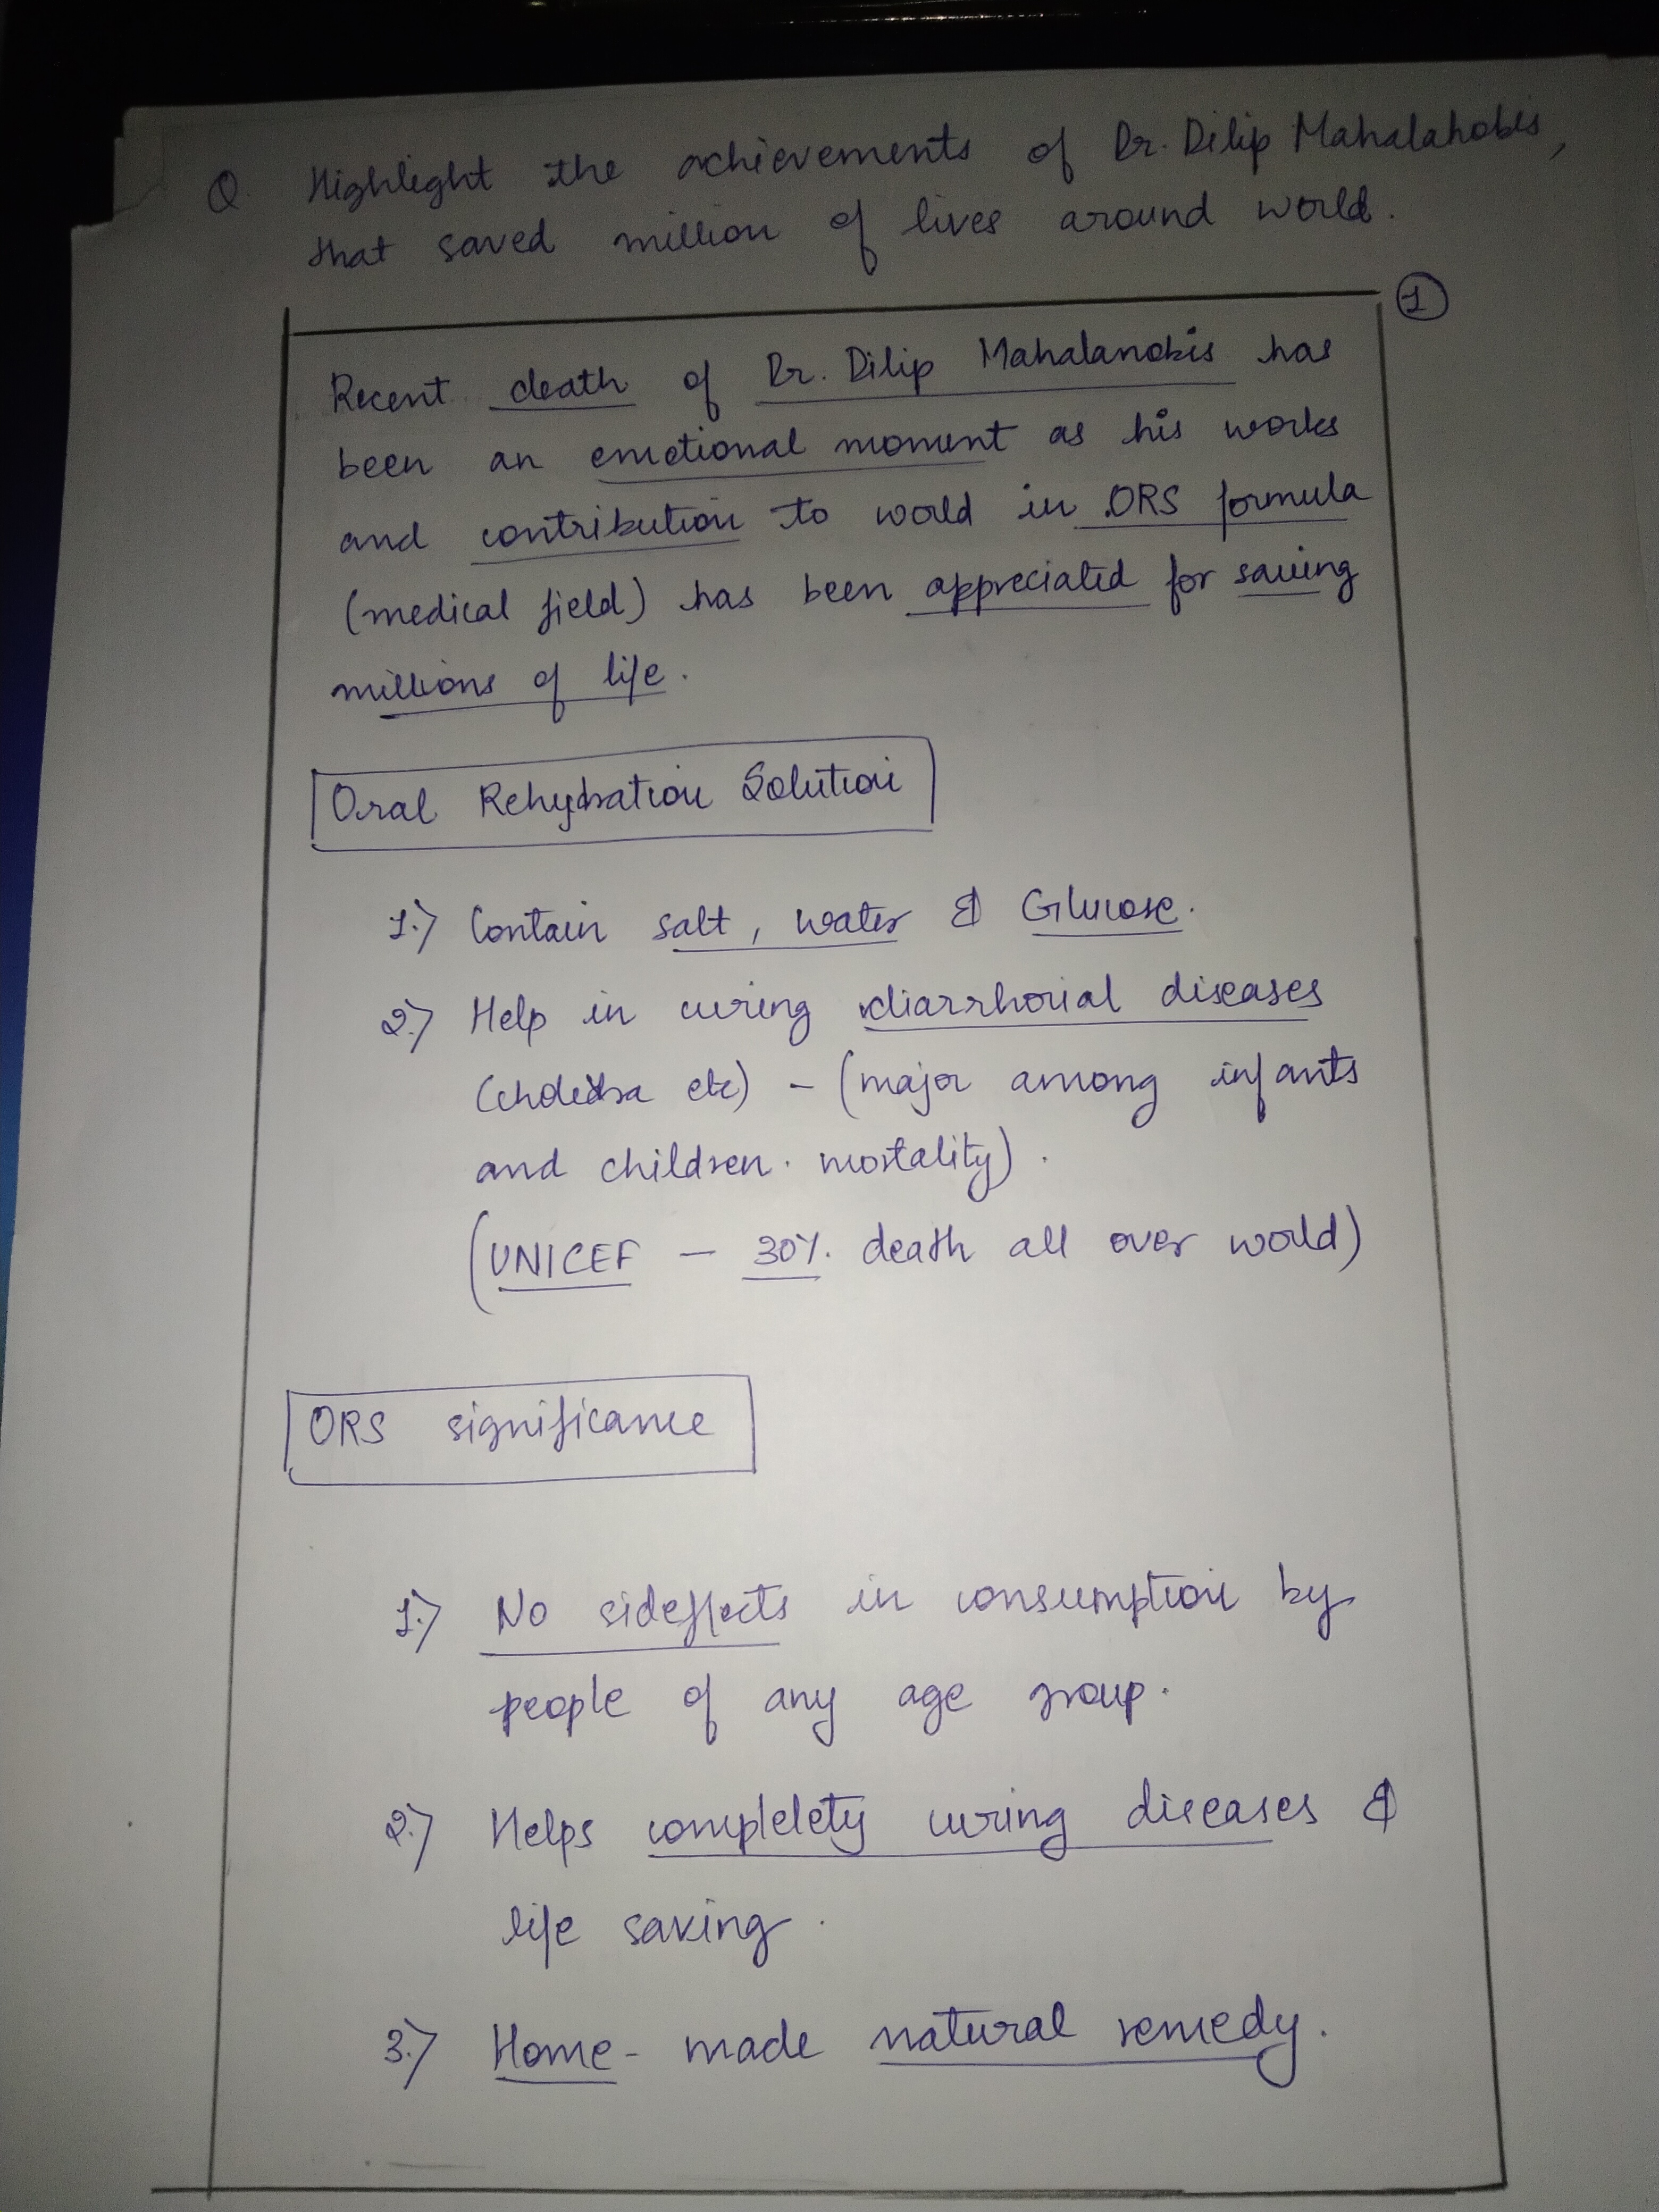 Q. Highlight the achievements of Dr. Dilip Mahalahobis,
that saved million of lives around world.
1
Recent death of Dr. Dilip Mahalanobis has
been an emotional moment as his works
and contribution to world in ORS formula
(medical field) has been appreciated for saving
millions of life.
Oral Rehydration Solution
1.) Contain salt, water & Glucose.
2.) Help in curing diarrhorial diseases
etc) - (major among infants
and children. mortality).
(UNICEF - 30%. death all over world)
ORS significance
1.) No sideffects in consumption by
people of any age group.
2.) Helps complelety curing diseases &
life saving.
3.) Home-made natural remedy.